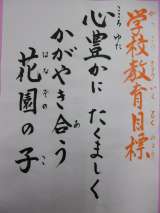 学校教育目標
心豊かに たくましく
かがやき合う
花園の子